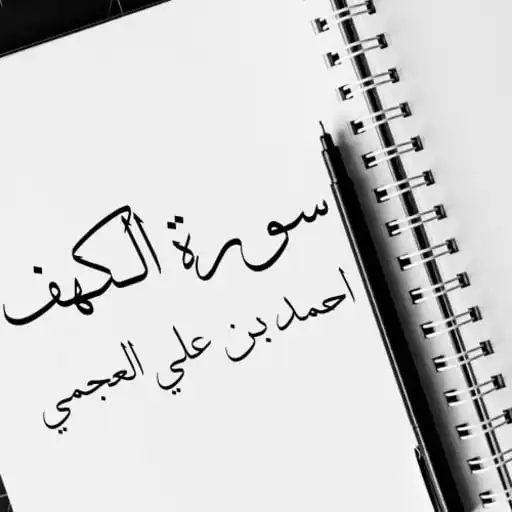 سورة الكهف
احمد بن علي العجمي